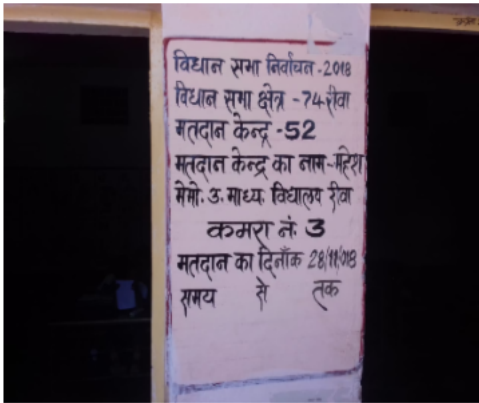 विधान सभा निर्वाचन-2018
विधान सभा क्षेत्र -74रीवा
मतदान केन्द्र -52
मतदान केन्द्र का नाम-महेश
मेमो. उ. माध्य. विद्यालय रीवा
कमरा नं. 3
मतदान का दिनाँक 28/11/018
समय से तक